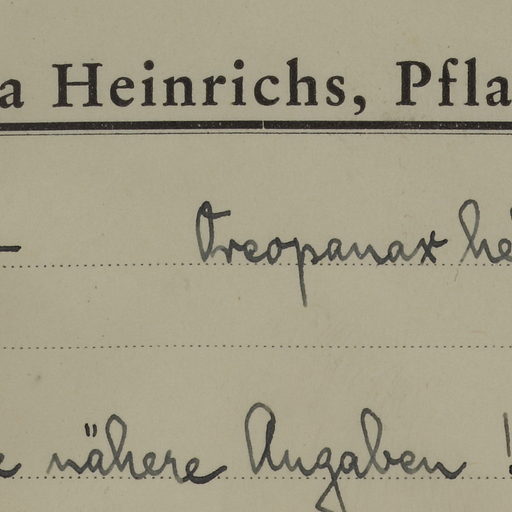 a Heinrichs, Pfla
— Oreopanax he
e nähere Angaben !